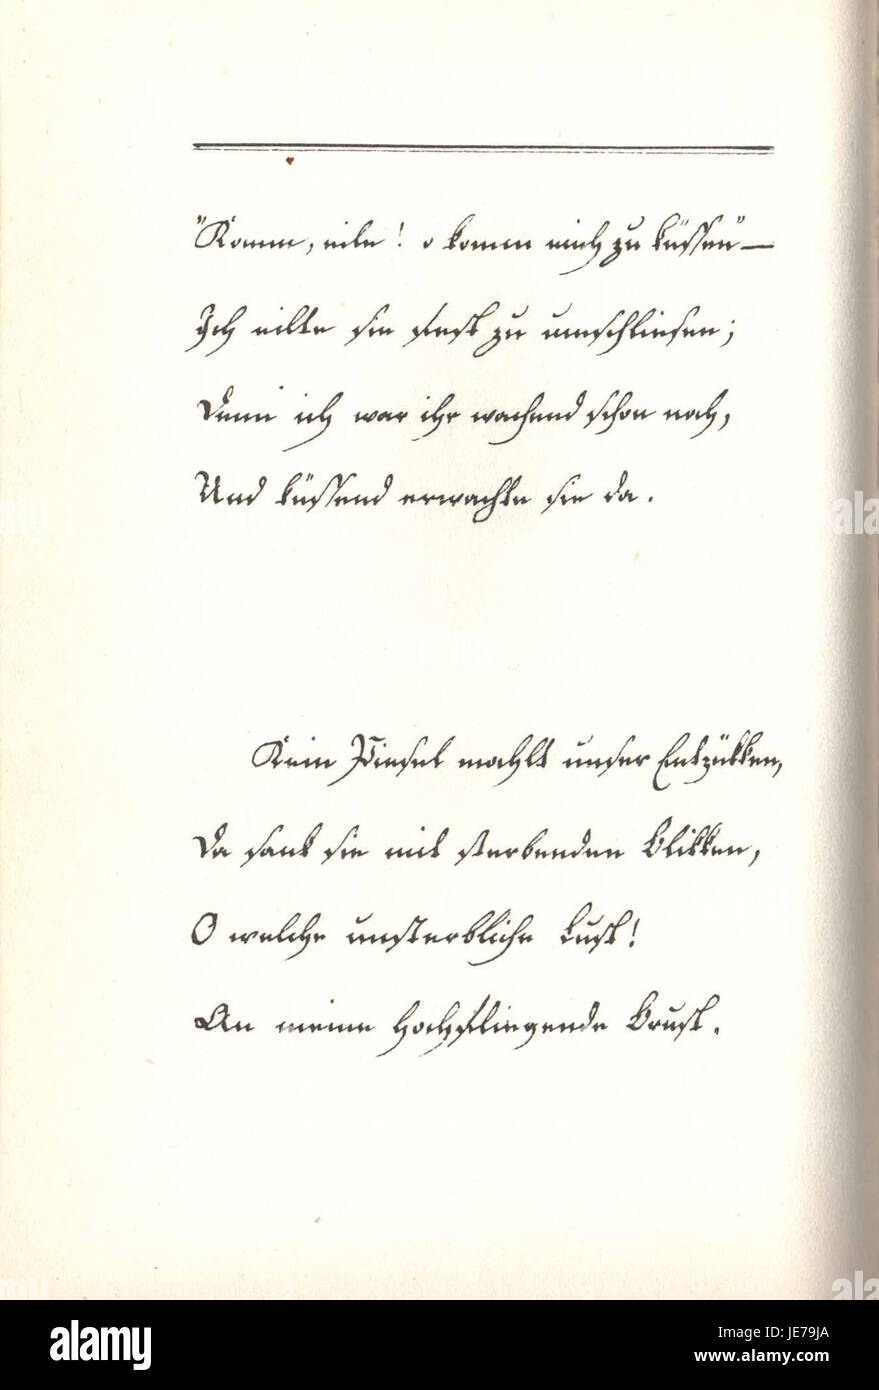 "Komm, eile! o komm mich zu küssen" —
Ich eilte sie fest zu umschliesen;
Denn ich war ihr wachend schon nah,
Und küssend erwachte sie da.
Kein Piensel mahlt unser Entzükken,
Da sank sie mit sterbenden Blikken,
O welche unsterbliche Lust!
An meine hochfliegende Brust.
alamy
Image ID: JE79JA
www.alamy.com